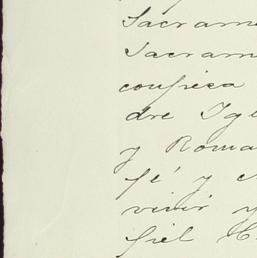 Sacrame
Sacram
confiesa
dre Igle
y Roma
fé y c
vivir y
fiel C